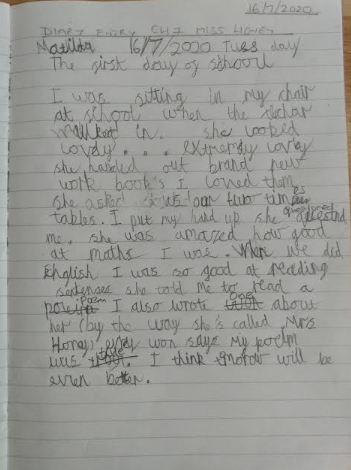 16/7/2020
DIARY ENTRY CH7 MISS HONEY
Matilda 16/7/2020 Tues day
The first day of school
I was sitting in my chair
at school when the techar
walked in. she looked
lovely... extremly lovly
she handed out brand new
work book's I loved them
she asked our two times
tables. I put my hand up she questioned
me. she was amazed how good
at maths I was. When we did
English I was so good at reading
sentenses she told me to read a
poem I also wrote one about
her (by the way she's called Mrs
Honey, won says my poem
was I think tmorow will be
even better.